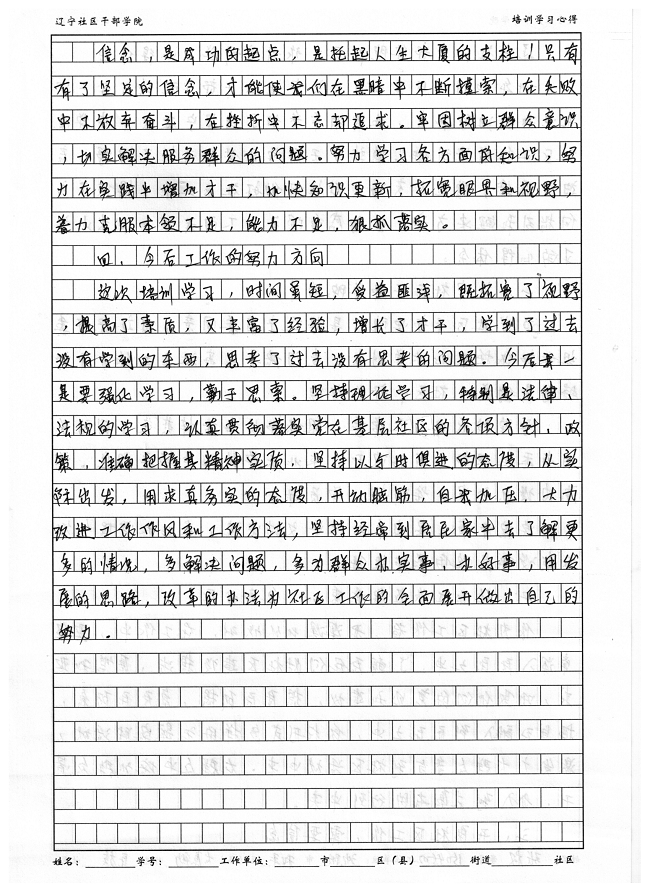 辽宁社区干部学院 培训学习心得
信念，是成功的起点，是托起人生大厦的支柱！只有
有了坚定的信念，才能使我们在黑暗中不断摸索，在失败
中不放弃奋斗，在挫折中不忘却追求。牢固树立群众意识
，切实解决服务群众的问题。努力学习各方面的知识，努
力在实践中增加才干，加快知识更新，拓宽眼界和视野，
着力克服本领不足，能力不足，狠抓落实。
四、今后工作的努力方向
这次培训学习，时间虽短，受益匪浅，既拓宽了视野
，提高了素质，又丰富了经验，增长了才干，学到了过去
没有学到的东西，思考了过去没有思考的问题。今后第一
是要强化学习，勤于思索。坚持理论学习，特别是法律、
法规的学习，认真贯彻落实党在基层社区的各项方针、政
策，准确把握其精神实质，坚持以与时俱进的态度，从实
际出发，用求真务实的态度，开动脑筋，自我加压，大力
改进工作作风和工作方法，坚持经常到居民家中去了解更
多的情况，多解决问题，多为群众办实事、办好事，用发
展的思路，改革的办法为社区工作的全面展开做出自己的
努力。
姓名：________学号：________工作单位：________市________区（县）________街道________社区